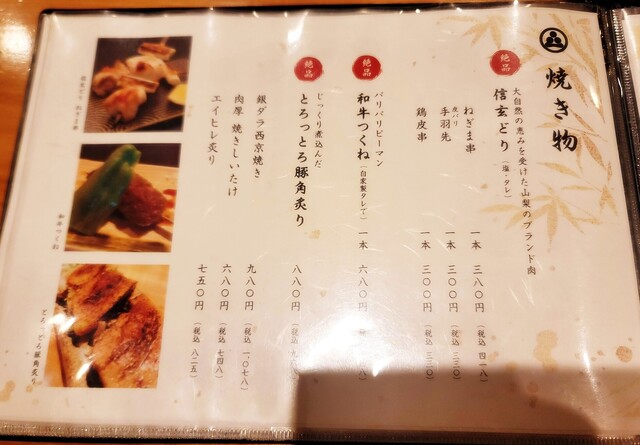 焼き物
絶品
大自然の恵みを受けた山梨のブランド肉
信玄どり（塩・タレ）
ねぎま串 一本 三八〇円（税込 四一八）
皮パリ
手羽先 一本 三〇〇円（税込 三三〇）
鶏皮串 一本 三〇〇円（税込 三三〇）
絶品
パリパリピーマン
和牛つくね（自家製タレで） 一本 六八〇円
絶品
じっくり煮込んだ
とろっとろ豚角炙り 八八〇円
銀ダラ西京焼き 九八〇円（税込 一、〇七八）
肉厚 焼きしいたけ 六八〇円（税込 七四八）
エイヒレ炙り 七五〇円（税込 八二五）
信玄どり ねぎま串
和牛つくね
とろっとろ豚角炙り